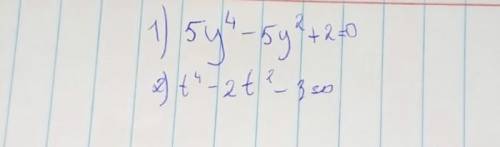 1) 5y⁴ - 5y² + 2 = 0
2) t⁴ - 2t² - 3 = 0